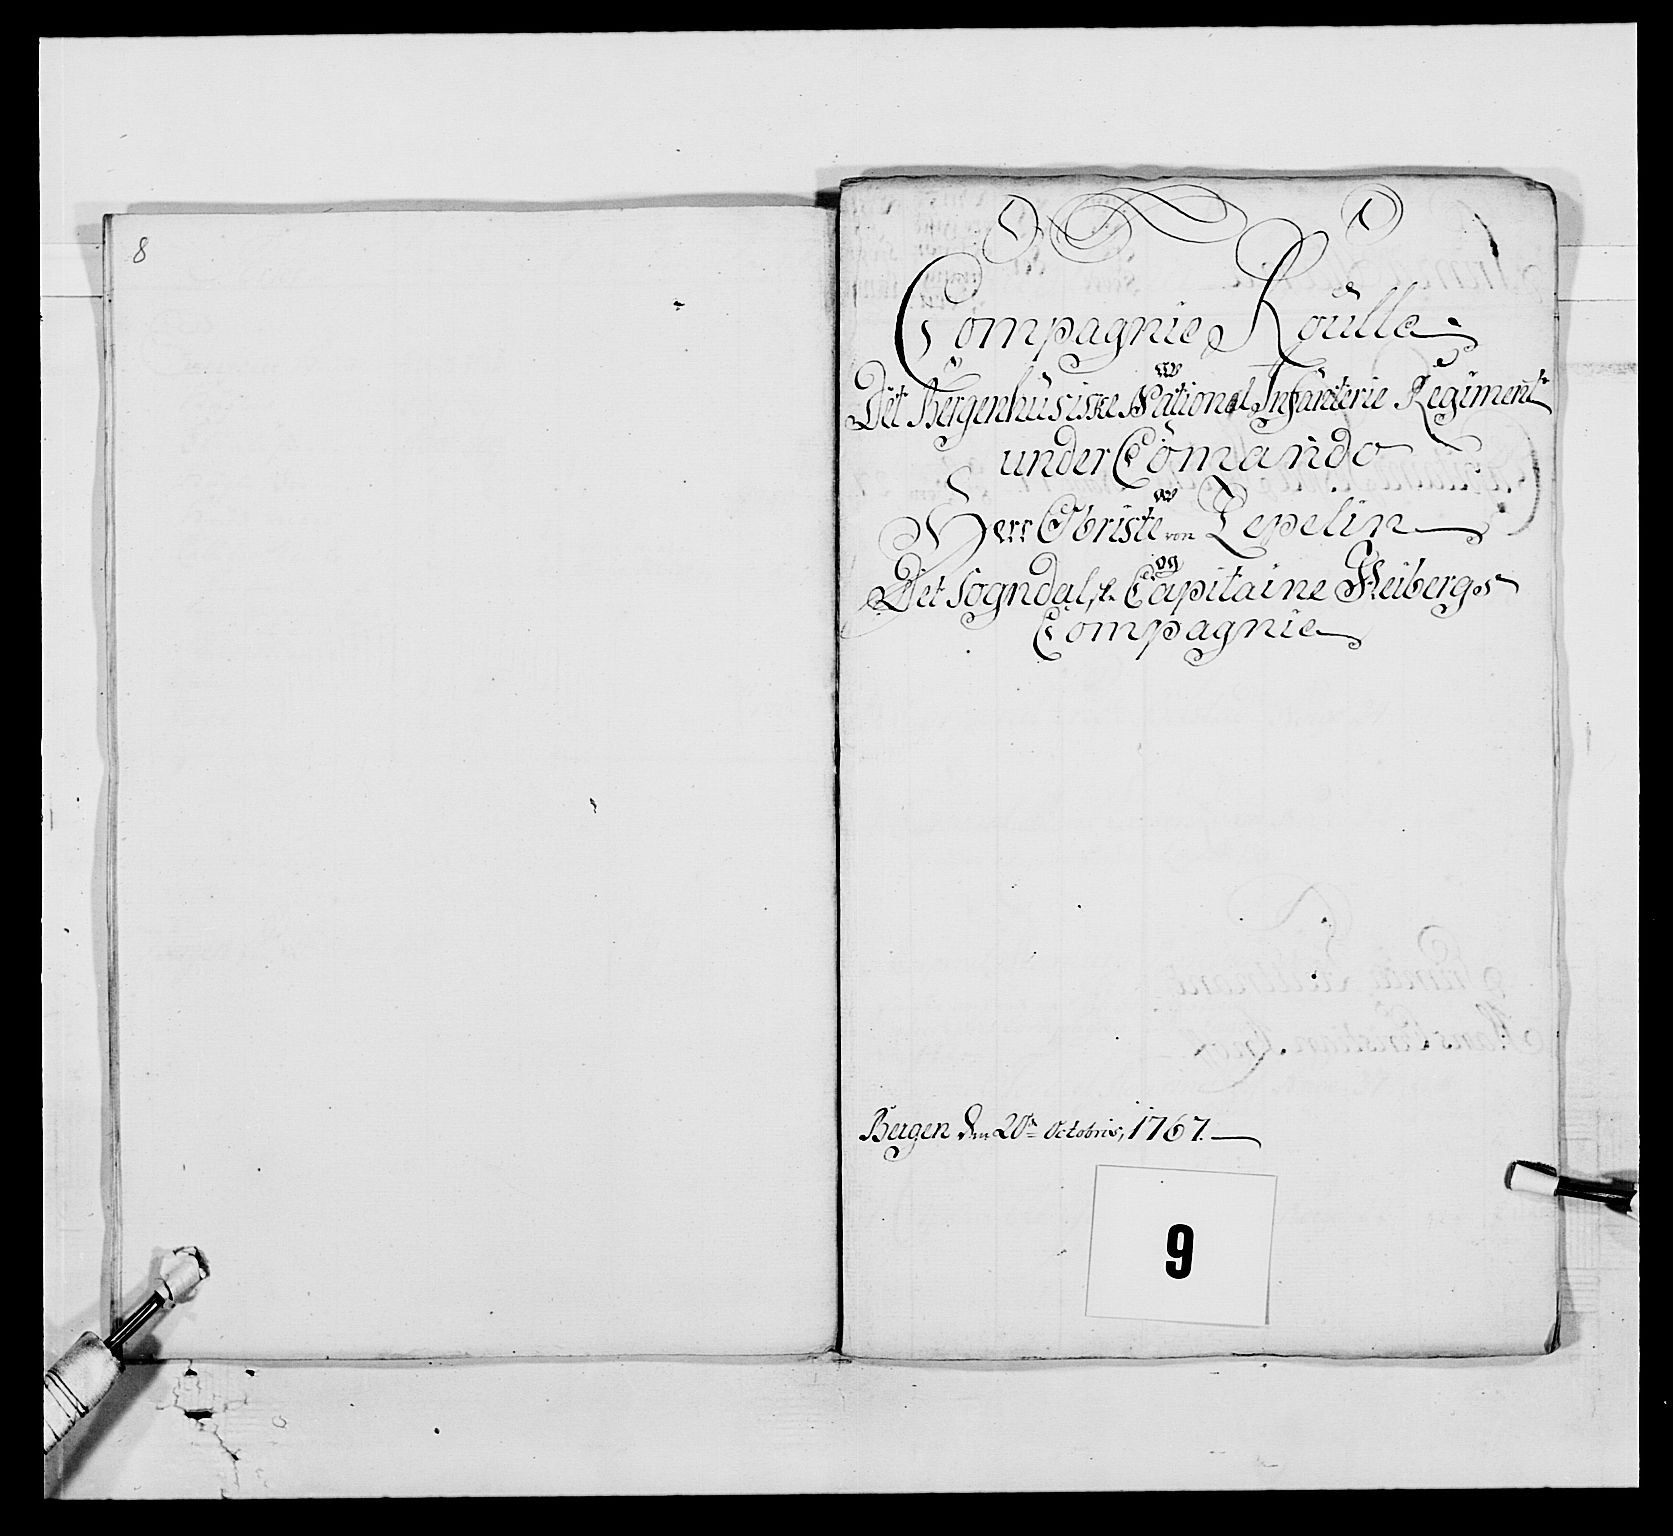 8
Compagnie Roulle
Det Bergenhusiske National Infanterie Regiment
under Comando
Herr Obriste von Zepelin
og
Det Sogndalske Capitaine Heibergs
Compagnie
Bergen den 20de Octobris, 1767.
9